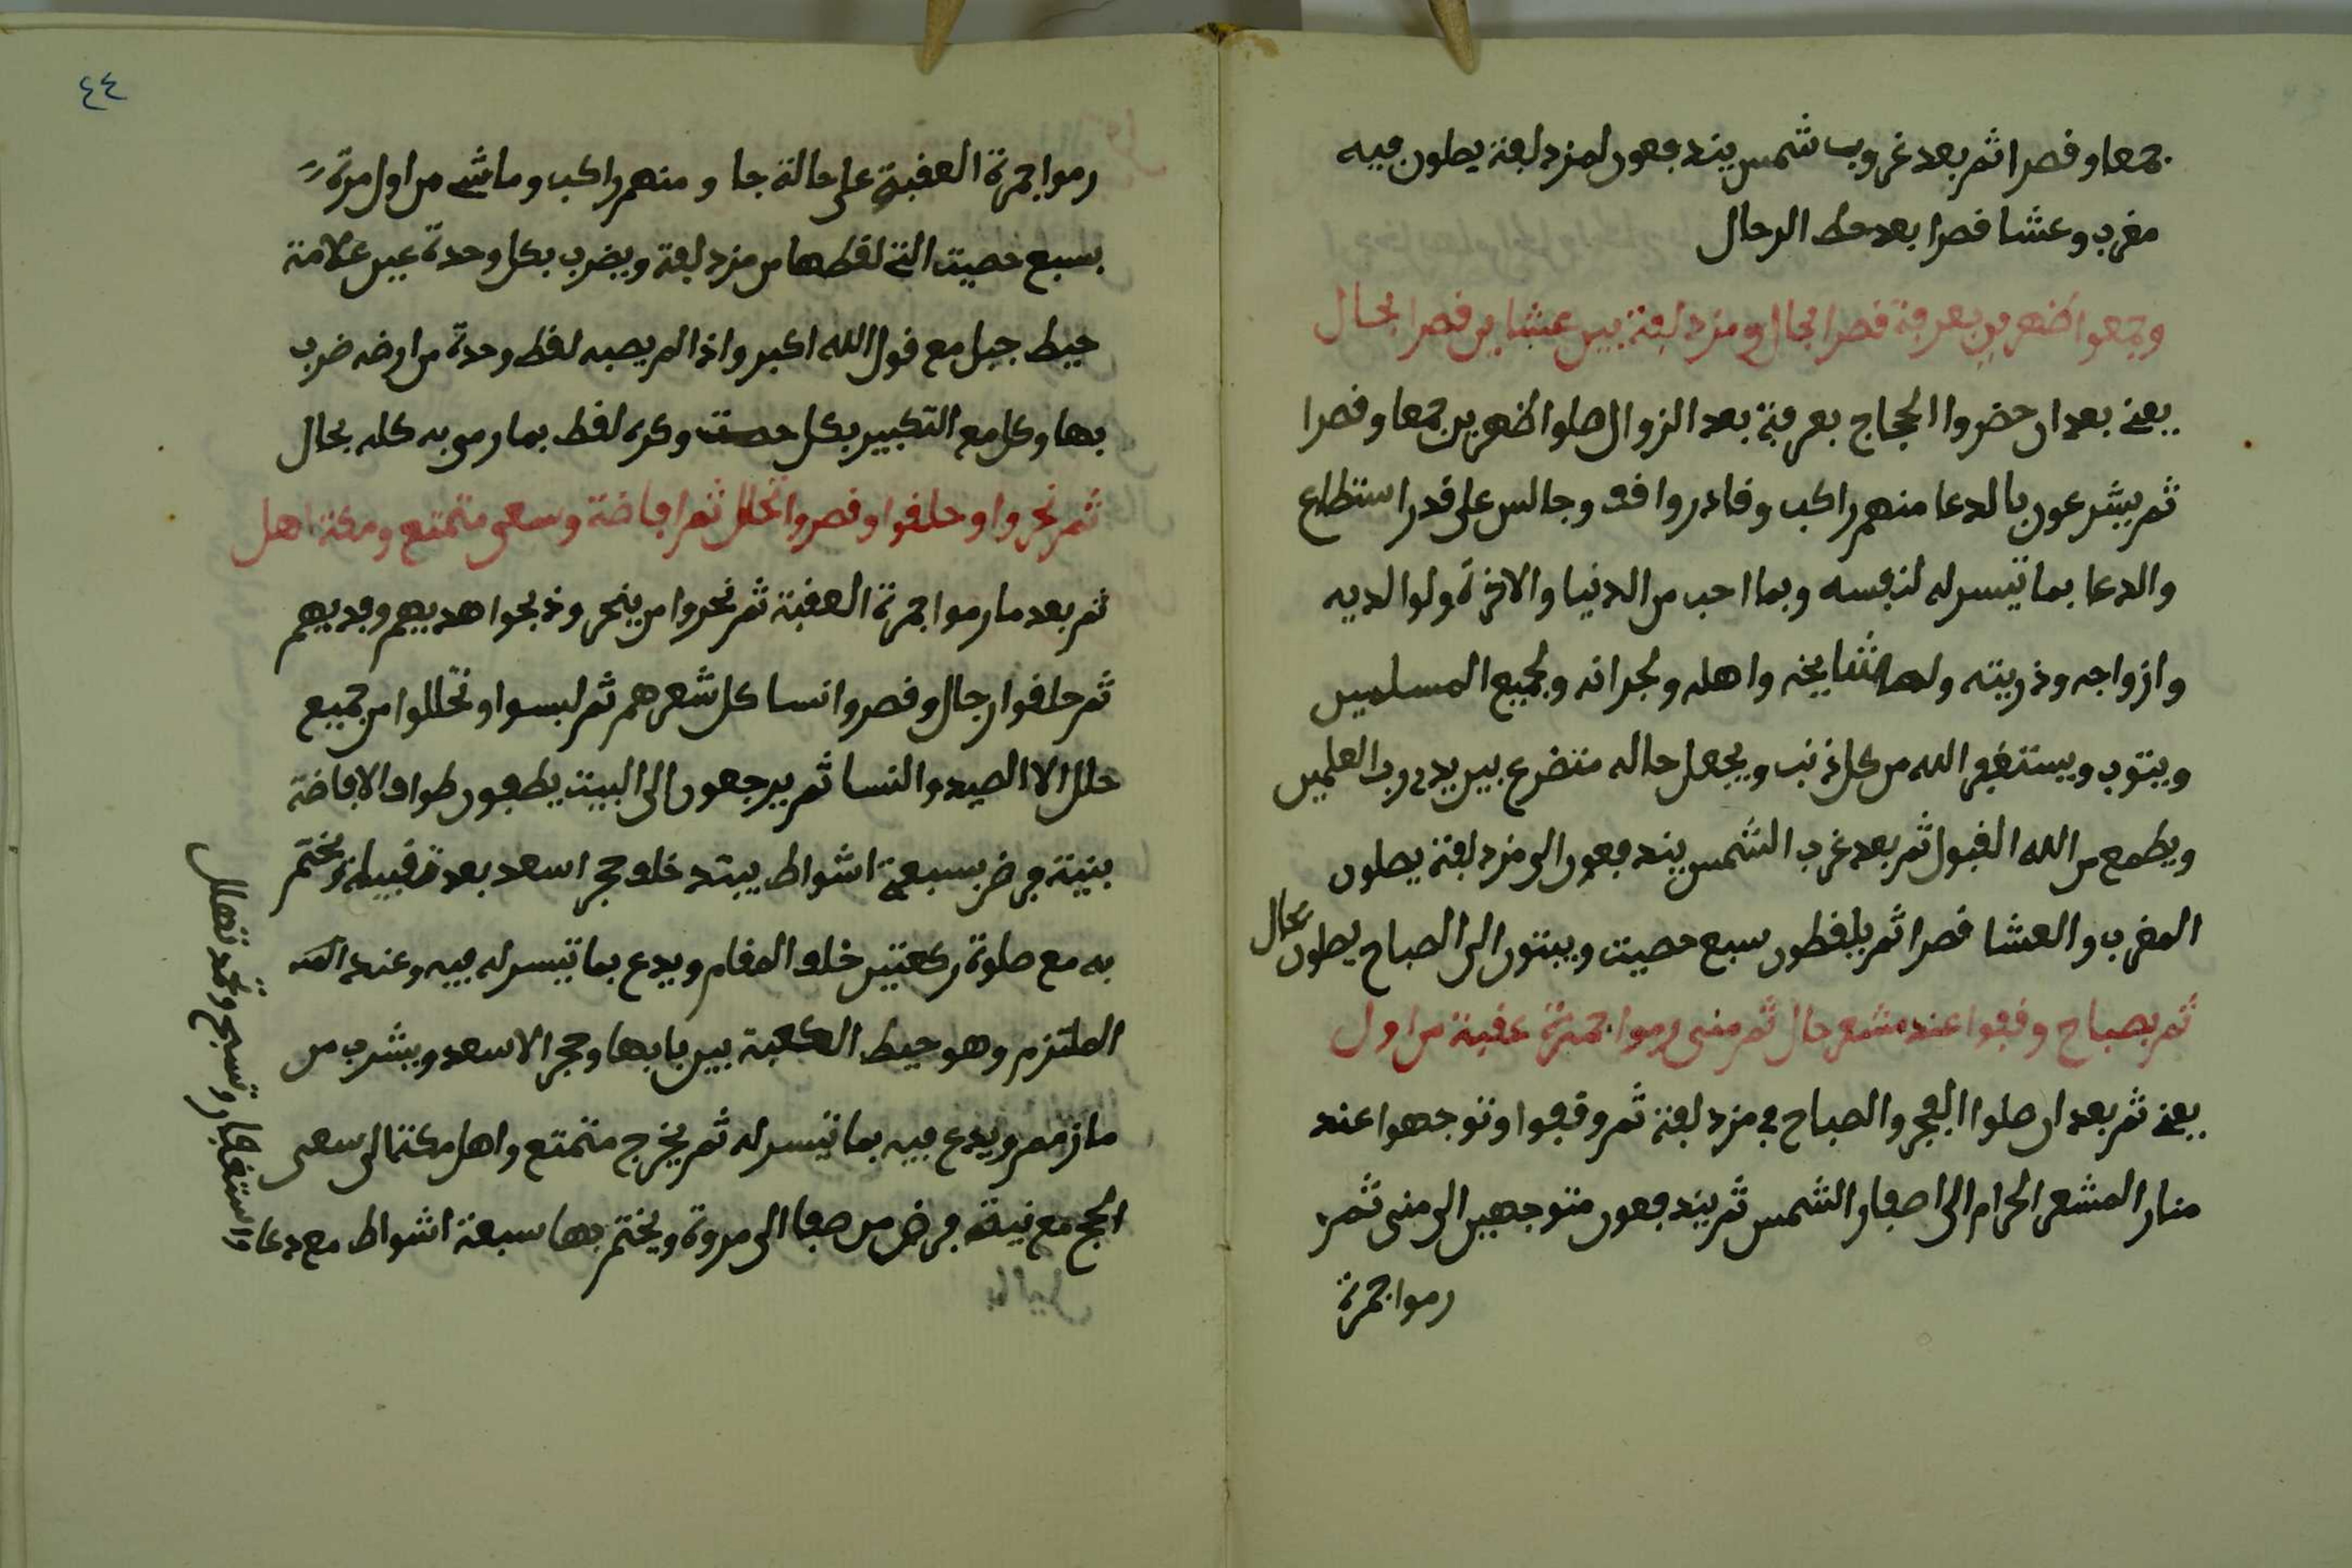 جمعا وقصرا ثم بعد غروب شمس يندفعون لمزدلفة يصلون فيه
مغرب وعشا قصرا بعد حط الرحال
وجمعوا ظهرين بعرفة قصرا بحال ومزدلفة بين عشاين قصرا بحال
يعني بعد ان حضروا الحجاج بعرفة بعد الزوال صلوا ظهرين جمعا وقصرا
ثم يشرعون بالدعا منهم راكب وقادر واقف وجالس على قدر استطاع
والدعا بما تيسر له لنفسه وبما احب من الدنيا والاخرة ولوالديه
وازواجه وذريته ولمشايخه واهله ولجرانه ولجميع المسلمين
ويتوب ويستغفر الله من كل ذنب ويجعل حاله متضرع بين يدي رب العلمين
ويطمع من الله القبول ثم بعد غرب الشمس يندفعون الى مزدلفة يصلون
المغرب والعشا قصرا ثم يلقطون سبع حصيت ويبتون الى الصباح يصلون بحال
ثم بصباح وقفوا عند مشعر حال ثم منى رموا جمرة عقبة من اول
يعني ثم بعد ان صلوا الفجر والصباح في مزدلفة ثم وقفوا وتوجهوا عند
منار المشعر الحرام الى اصفار الشمس ثم يندفعون متوجهين الى منى ثم
رموا جمرة
٤٤
رموا جمرة العقبة على حالة جا و منهم راكب وماشي من اول مرة
بسبع حصيت التي لقطها من مزدلفة ويضرب بكل وحدة عين علامة
حيط جبل مع قول الله اكبر واذا لم يصبه لقط وحدة من ارضه ضرب
بها وكل مع التكبير بكل حصت وكره لقط بما رمى به كله بحال
ثم نحروا وحلقوا وقصروا تحلل ثم افاضة وسعى متمتع ومكة اهل
ثم بعد ما رموا جمرة العقبة ثم نحروا من ينحر وذبحوا هديهم وفديهم
ثم حلقوا رجال وقصروا نسا كل شعرهم ثم لبسوا وتحللوا من جميع
حلل الا الصيد والنسا ثم يرجعون الى البيت يطفون طواف الافاضة
بنية فرض بسبعة اشواط يبتد خلف حجر اسعد بعد قبيله ويختم
به مع صلوة ركعتين خلف المقام ويدع بما تيسر له فيه وعند
الملتزم وهو حيط الكعبة بين بابها وحجر الاسعد ويشرب من
ما زمزم ويدع فيه بما تيسر له ثم يخرج متمتع واهل مكة الى سعى
الحج مع نية فرض من صفا الى مروة ويختم بها سبعة اشواط مع دعا
واستغفار وتسبح وحمد تهلل